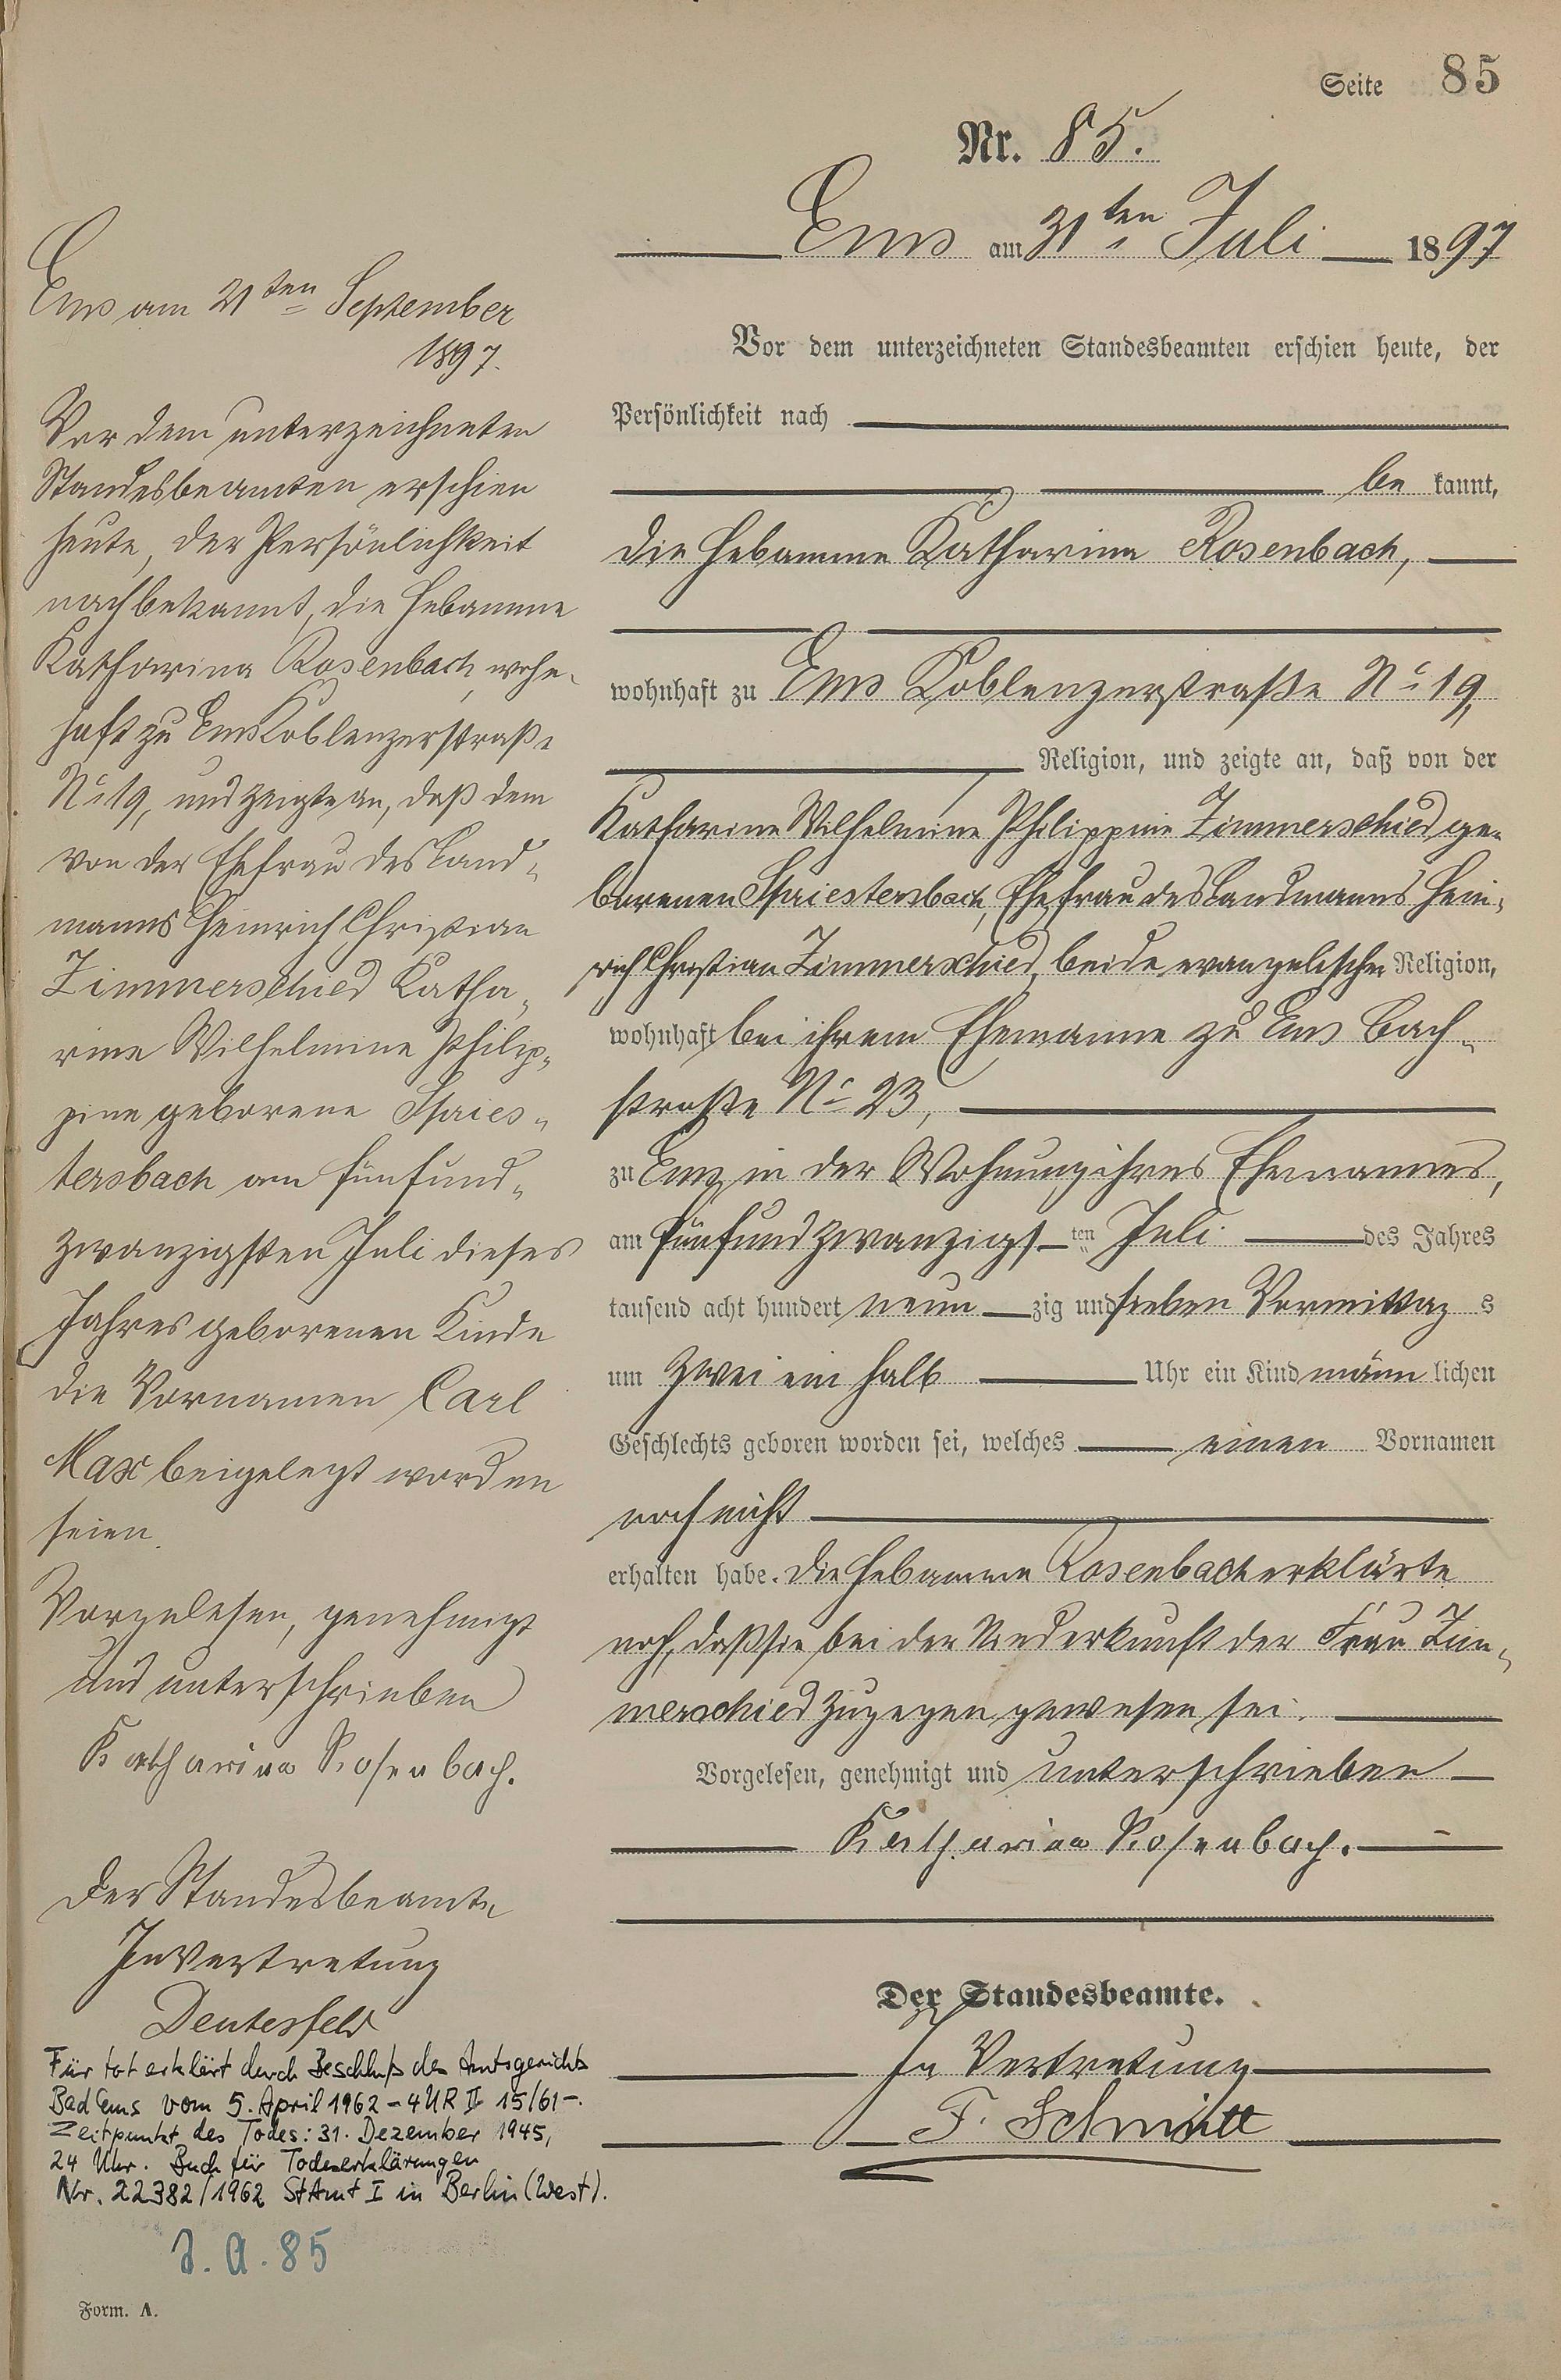 Seite 85
Nr. 85.
Ems am 31ten Juli 1897
Vor dem unterzeichneten Standesbeamten erschien heute, der
Persönlichkeit nach
be kannt,
die Hebamme Katharina Rosenbach,
wohnhaft zu Ems Koblenzerstraße No 19,
Religion, und zeigte an, daß von der
Katharine Wilhelmine Philippine Zimmerschied ge-
borenen Spriestersbach, Ehefrau des Landmanns Hein-
rich Christian Zimmerschied, beide evangelischer Religion,
wohnhaft bei ihrem Ehemanne zu Ems Bach-
straße No 23,
zu Ems in der Wohnung ihres Ehemannes,
am fünfundzwanzigs ten Juli des Jahres
tausend acht hundert neun zig und sieben Vormittag s
um zwei ein halb Uhr ein Kind männ lichen
Geschlechts geboren worden sei, welches einen Vornamen
noch nicht
erhalten habe. Die Hebamme Rosenbach erklärte
noch, daß sie bei der Niederkunft der Frau Zim-
merschied zugegen gewesen sei.
Vorgelesen, genehmigt und unterschrieben
Katharina Rosenbach.
Der Standesbeamte.
In Vertretung
F. Schmitt
Ems am 21ten September
1897.
Vor dem unterzeichneten
Standesbeamten erschien
heute, der Persönlichkeit
nach bekannt, die Hebamme
Katharina Rosenbach, wohn-
haft zu Ems Koblenzerstraße
No 19, und zeigte an, daß dem
von der Ehefrau des Land-
manns Heinrich Christian
Zimmerschied Katha-
rine Wilhelmine Philip-
pine geborene Spries-
tersbach am fünfund-
zwanzigsten Juli dieses
Jahres geborenen Kinde
die Vornamen Carl
Max beigelegt worden
seien.
Vorgelesen, genehmigt
und unterschrieben
Katharina Rosenbach.
Der Standesbeamte
In Vertretung
Deutesfeld
Für tot erklärt durch Beschluß des Amtsgerichts
Bad Ems vom 5. April 1962 - 4 UR II 15/61 -.
Zeitpunkt des Todes: 31. Dezember 1945,
24 Uhr. Buch für Todeserklärungen
Nr. 22382/1962 StAmt I in Berlin (West).
J. A. 85
Form. A.